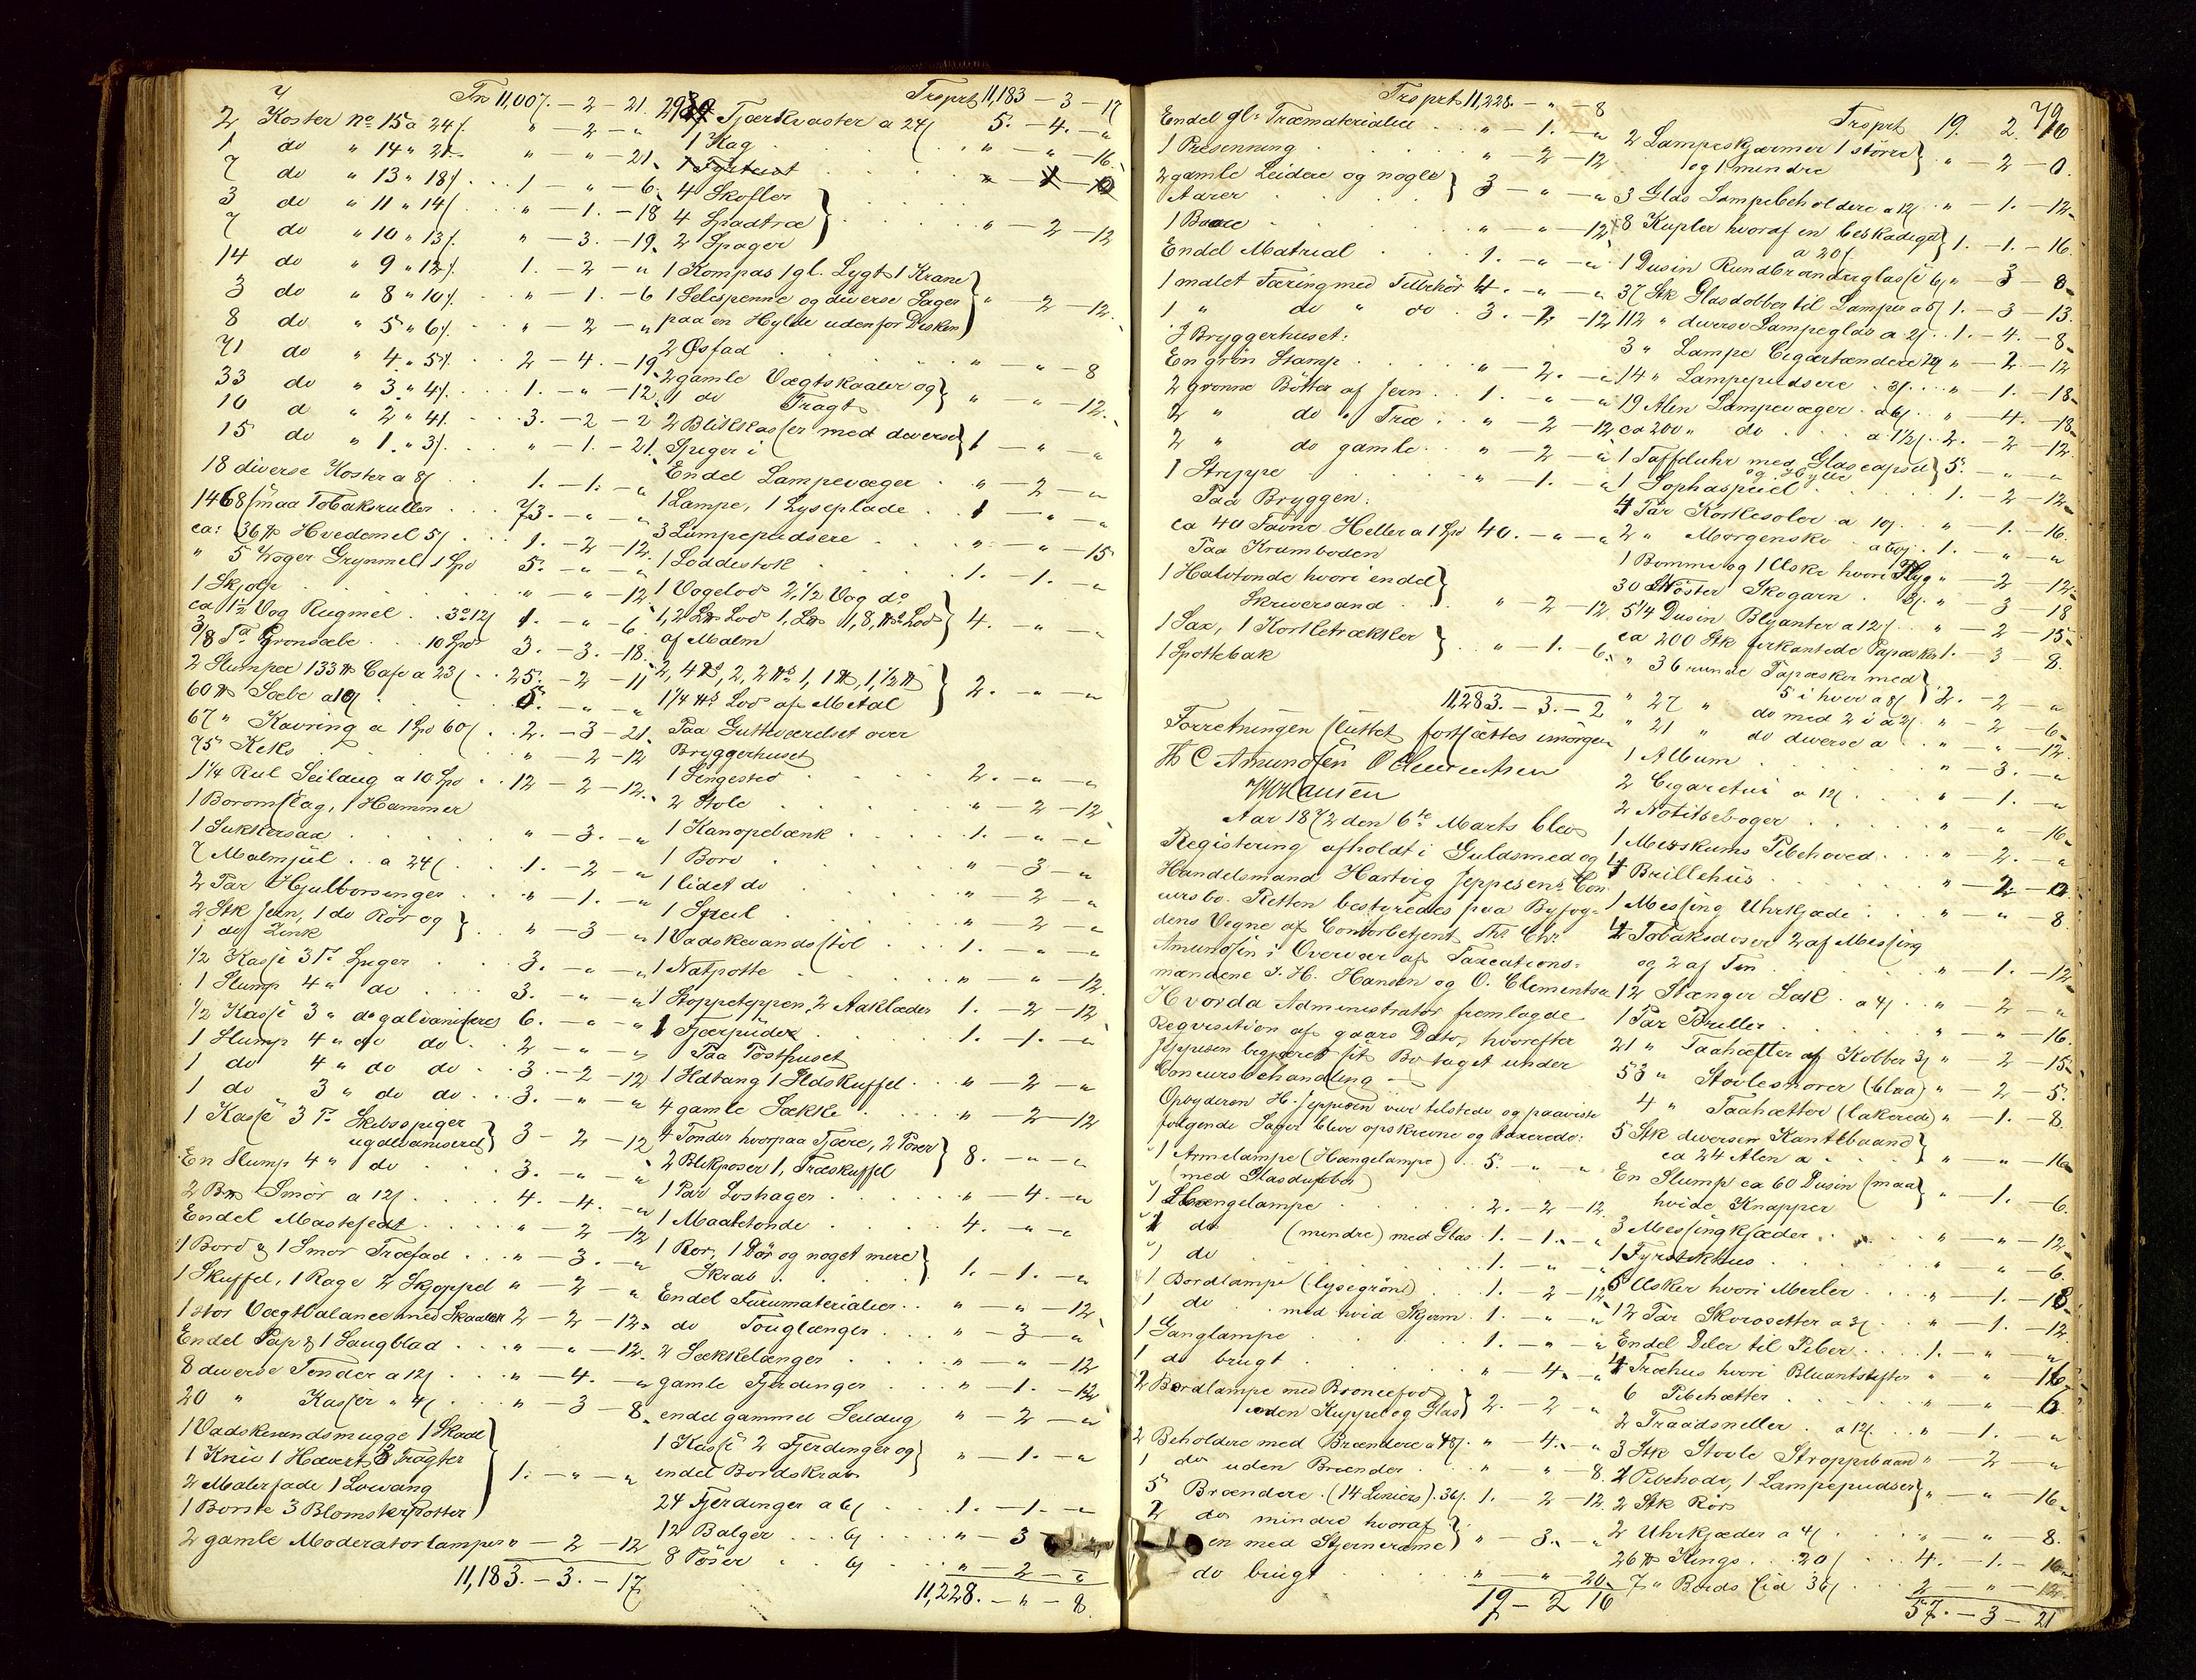 Tr 11,007. - 2 - 21.
2 Koster No 15 a 24 ʃ. " - 2 - "
1 do " 14 " 21 - " - " - 21.
7 do " 13 " 18 ʃ. . . . 1 - " - 6.
3 do " 11 " 14 ʃ . . . " - 1. - 18
7 do " 10 " 13 ʃ. . . . " - 3. - 19.
14 do " 9 " 12 ʃ. 1. - 2 - "
3 do " 8 " 10 ʃ. . . . " - 1. - 6
8 do " 5 " 6 ʃ. . . . " - 2 - "
71 do " 4 " 5 ʃ. . . 2 - 4. - 19
33 do " 3 " 4 ʃ. . . . 1. - " - 12
10 d " 2 " 4 ʃ. . . . 3. - 2 - 2
15 do " 1. " 3 ʃ. . . . " - 1. - 21.
18 diverse Koster a 8 ʃ . . . 1. - 1. - "
1468 smaa Tobaksruller . . . 73. - " - "
ca: 36 ℔ Hvedemel 5 ʃ . . . 1. - 2 - 12.
" 5 Voger Grynmel 1 Spd 5. - " - "
1 Skjolp . . . " - " - 12
ca 1½ Vog Rugmel . . 3 o 12 ʃ 1. - " - 6.
3/8 Ta Gronsæbe . . . 10 Spd 3. - 3. - 18.
2 Slumper 133 ℔ Cafe a 23 ʃ . . 25. - 2 - 11
60 ℔ Sæbe a 10 ʃ . . . 5. - " - "
67 " Kavring a 1 Spd 60 ʃ . . 2. - 3 - 21.
75 Keks . . . " - 2 - 12
1¼ Rul Seildug a 10 Spd . . 12 - 2 - 12.
1 Boromslag, 1 Hammer
1 Sukkersax . . . " - 3. - "
7 Malmjul . . a 24 ʃ . . . 1. - 2 - "
2 Par Hjulbørsinger . . . " - 1. - "
2 Stk Jern, 1 do Rør og }
1 do Zink } . . " - 3 - "
½ Kasse 3 Ta Spiger . . . 3. - " - "
1 Slump 4 " do . . . 3. - " - "
½ Kasse 3 " do galvaniseres 6. - " - "
1 Slump 4 " do do . . 2 - " - "
1 do 4 " do do . . 3. - 2 - 12
1 do 3 " do do . . . 3. - " - "
1 Kasse 3 Ta Skibsspiger }
ugalvaniseret } 3 - 2 - 12
En Slump 4 " do . . . 3. - " - "
2 B℔ Smør a 12 ʃ . . . 4. - 4. - "
Endel Mastefedt . . . " - 2 - 12
1 Bord & 1 Smør Træfad . . . " - 3. - "
1 Skuffel, 1 Rage 2 Skjeppel " - 2 - "
1 stor Vægtbalance med Skaaler 2 - 2 - 12.
Endel Pap & 1 Saugblad . . . " - " - 12.
8 diverse Tønder a 12 ʃ . . . " - 4. - "
20 " Kasser " 4 ʃ . . . " - 3 - 8.
1 Vadskevandsmugge 1 Skaal
1 Kniv 1 Hævert 3 Tragter
2 Malerfade 1 Lovvang } 1. - " - "
1 Børste 3 Blomsterpotter
2 gamle Moderatorlamper " - 2 - 12
11,183. - 3. - 17
Trsprt 11,183 - 3 - 17
Tjærkvaster a 24 ʃ 5. - 4. - "
1 Kag . . . " - " - 16.
4 Skofler }
4 Spadtræ } . . . " - 2 - 12
2 Spager }
1 Kompas 1 gl. Lygt 1 Krane }
1 Selespenne og diverse Sager } " - 2 - 12.
paa en Hylde udenfor Disken }
2 Øsfad . . . " - " - 8
2 gamle Vægtskaaler og }
1 do Tragt } " - " - 12.
2 Blikkasser med diverse }
Spiger i } 1 - " - "
Endel Lampevæger . " - 2 - "
1 Lampe, 1 Lyseplade . . 1 - " - "
3 Lampepudsere . . . " - " - 15
1 Loddestok . . . 1. - 1. - "
1 Vogelod 2½ Vog do }
1, 2 L℔ Lod 1, L℔ 11, 8, ℔s Lod } 4. - " - "
af Malm
2, 4 ℔s, 2, 2 ℔s 1, 1 ℔, 1, ½ ℔ }
1¼ ℔s Lod af Metal } 2. - " - "
Paa Gutteværelset over
Bryggerhuset
1 Sengested . . . 2. - " - "
2 Stole . . . " - 2 - 12.
1 Kanapebænk . . . 1. - " - "
1 Bord . . . " - 3 - "
1 lidet do . . . " - 2 - "
1 Speil . . . " - 2 - "
1 Vadskevandsstol . . . 1. - " - "
1 Natpotte . . . " - " - 12.
1 Stoppeteppen, 2 Aaklæder 1. - 2 - 12
1 Fjærpude . . . 1. - 1. - "
Paa Posthuset
1 Ildtang 1 Ildskuffel . . " - 2 - "
4 gamle Sække . . . " - 2 - 12
4 Tønder hvorpaa Tjære, 2 Pøser }
2 Blikposer 1, Træskuffel } 8. - " - "
1 Par Loshager . . . " - 4. - "
1 Maaletønde . . . 4. - " - "
1 Ror, 1 Dør og noget mere }
Skrab . . . } 1. - 1. - "
Endel Furumaterialier . . " - " - 12
do Touglænger . . . " - 3 - "
2 Sækkelænger . . . " - " - 12
gamle Fjerdinger . . . " - 1. - 12
endel gammel Seildug " - 2 - "
1 Kasse 2 Fjerdinger og }
endel Bordskrab } " - 1. - "
24 Fjerdinger a 6 ʃ . 1. - 1. - "
12 Balger . . . 6 ʃ . . . " - 3
8 Pøser . . 6 ʃ . . . " - 2 - "
11,228. - " - 8
Trsprt 11,228. - " - 8
Endel gl. Træmaterialier . . . " - 1. - "
1 Presenning . . . " - 2 - 12
2 gamle Leidere og nogle }
Aarer . . . } 3 - " - "
1 Baare . . . " - " - 12
Endel Matrial . . . 1. - " - "
1 malet Færing med Tilbehør 4. - " - "
1 " do " do . 3. - 2 - 12
I Bryggerhuset:
En grøn Stamp . . . " - 2. - "
2 grønne Bøtter af Jern . . 1. - " - "
2 " do " Træ . . " - 2 - 12
2 " do gamle . . " - 2 - "
1 Strippe . . . " - 1. - "
Paa Bryggen:
ca 40 Favne Heller a 1 Spd 40. - " - "
Paa Kramboden
1 Halvtønde hvori endel }
Skriversand . . . } " - 2 - 12
1 Sax, 1 Korketrækker }
1 Spottebak } . . " - 1. - 6.
11,283. - 3. - 2
Forretningen sluttet fortsættes imorgen
Th C Amundsen O Clementsen
Aar 1872 den 6te Marts blev
Registering afholdt i Guldsmed og
Handelsmand Hartvig Jeppesens Con
cursbo. Retten bestyredes paa Byfog=
dens Vegne af Contorbetjent Th. Chr
Amundsen i Overvær af Taxations=
mændene J. H. Hansen og O. Clementsen
Hvorda Administrator fremlagde
Reqvisition af gaars Dato, hvorefter
Jeppesen begjæret sit Bo taget under
Concursbehandling -
Opbyderen H. Jeppesen var tilstede og paaviste
følgende Sager blev opskrevne og taxerede:
1 Armelampe (Hængelampe) . . 5. " "
(med Glasdupper)
1 Hængelampe . . . 2. - 2 - 12.
1 do (mindre) med Glas . 1. - 1. - "
1 do . . . 1. - " - "
1 Bordlampe (lysegrøn) . . . 1. - 2 - 12
1 do . . . med hvid Skjerm . 1. - " - "
1 Ganglampe . . . 1. - " - "
1 do brugt . . . " - 4. - "
2 Bordlampe med Broncefod }
1 uden Kuppel og Glas } 2. - 2 - "
2 Beholdere med Brændere a 48 ʃ. " - 4. - "
1 do uden Brænder . . . " - " - 8.
5 Brændere. (14 Liniers) . 36 ʃ. 1. - 2 - 12.
2 do mindre hvoraf }
en med Stjernerame } " - 3. - "
do brugt . . . " - " - 20.
19 - 2 16
79
Trsprt 19. 2. 16
2 Lampeskjærmer 1 større }
og 1 mindre } " - 2 - 0.
3 Glas Lampebeholdere a 12 ʃ . " - 1. - 12.
8 Kupler hvoraf en beskadiget }
a 20 ʃ } 1. - 1. - 16.
1 Dusin Rundbrænderglasse 6 ʃ " - 3 - 8.
37 Stk Glasdobber til Lamper a 5 ʃ 1. - 3 - 13.
112 " diverse Lampeglas a 2 ʃ . . 1. - 4. - 8.
3 " Lampe Cigartændere 24 " - 2. - 12
14 " Lampepudsere . 3 ʃ . . . " - 1. - 18.
19 Alen Lampevæger . a 6 ʃ . " - 4. - 18.
ca 200 " do . . . a 1½ ʃ . 2. - 2 - 12.
1 Taffeluhr med Glascapsel }
og Hylle } 5. - " - "
1 Sophaspeil . . . 1. - 2 - 12.
4 Par Korkesoler a 10 ʃ . " - 1. - 16.
2 " Morgensko . a 60 ʃ . 1. - " - "
1 Bomme og 1 Æske hvori Flyg " - 2 - 12.
30 Nøster Skogarn . 3 ʃ . " - 3 - 18
5¼ Dusin Blyanter a 12 ʃ . . " - 2 - 15.
ca 200 Stk firkantede Papæsker 1. - 3 - 8.
" 36 runde Papæsker med }
5 i hver a 8 ʃ } 2. - 2 - "
" 27 " do med 2 i a 2 ʃ . " - 2 - 6.
" 21 " do diverse a . . " - " - 12.
1 Album . . . " - 3. - "
2 Cigaretui a 12 ʃ . . . " - 1. - "
2 Notitsebøger . . . " - " - 16.
1 Merskums Pibehoved . . . " - 2. - "
4 Brillehus . . . " - 2 - 0.
1 Messing Uhrkjæde . . . " - " - 8.
4 Tobaksdoser 2 af Messing
og 2 af Tin . . . " - 1. - 12.
12 Stænger Lak . a 4 ʃ . . " - 2 - "
1 Par Briller . . . " - " - 16.
21 " Taahætter af Kobber 3 ʃ " - 2 - 15.
53 " Støvlesnorer (blaa) " - 2 - 5.
4 " Taahætter (lakerede) " - 1. - 8.
5 Stk diverse Kantebaand }
ca 24 Alen a . . . } " - " - 16.
En Slump ca 60 Dusin smaa }
hvide Knapper } " - 1. - 6.
3 Messingkjæder . . . " - " - 12.
1 Fyrstikhus . . . " - " - 6.
6 Æsker hvori Merler . . . " - 1. - 18.
12 Par Skorosetter a 3 ʃ . . " - 1. - 12.
Endel Deler til Piber . . . 1. - " - "
4 Træhus hvori Bluantstifter " - " - 16.
6 Pibehætter . . . " - " - 6.
2 Traadsneller . a 12 ʃ . . " - 1. - "
3 Stk Støvle Stroppebaand " - 2 - "
2 Pibehode, 1 Lampepudser }
2 Stk Rør } " - " - 16.
2 Uhrkjæder a 4 ʃ . . . " - " - 8.
26 ℔ Kings . . . 20 ʃ . . 4. - 1. - 16.
7 " Bords Sid 36 ʃ . . . 2 - " - 12.
57. - 3 - 21